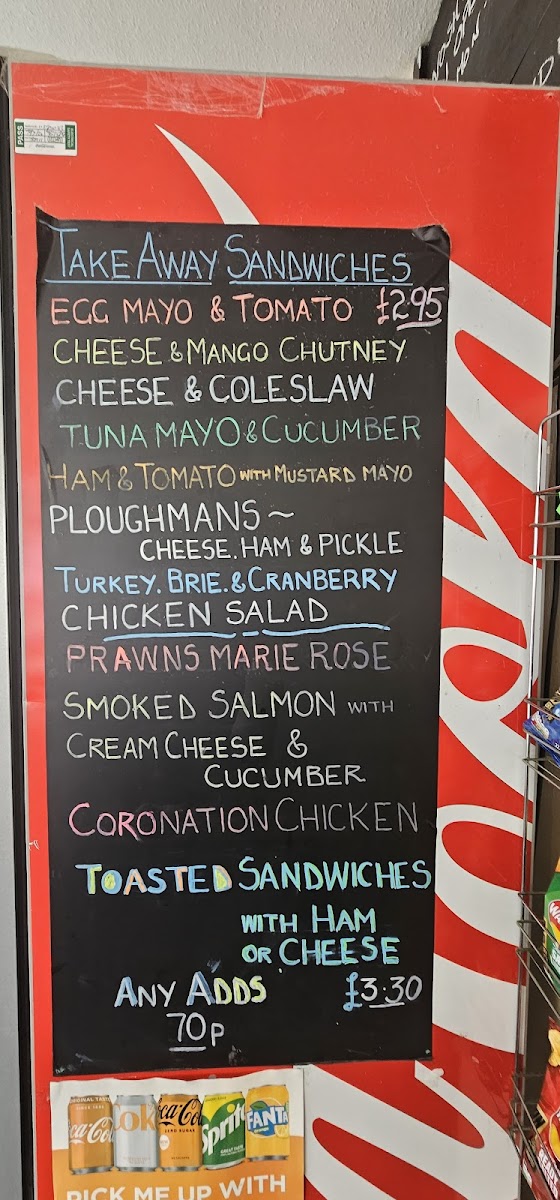 PASS
TAKE AWAY SANDWICHES
EGG MAYO & TOMATO £2.95
CHEESE & MANGO CHUTNEY
CHEESE & COLESLAW
TUNA MAYO & CUCUMBER
HAM & TOMATO WITH MUSTARD MAYO
PLOUGHMANS ~
CHEESE. HAM & PICKLE
TURKEY. BRIE. & CRANBERRY
CHICKEN SALAD
PRAWNS MARIE ROSE
SMOKED SALMON WITH
CREAM CHEESE &
CUCUMBER
CORONATION CHICKEN
TOASTED SANDWICHES
WITH HAM
OR CHEESE
ANY ADDS £3.30
70p
ORIGINAL TASTE
Coca-Cola Cok Coca-Cola Sprite FANTA
ZERO SUGAR
PICK ME UP WITH